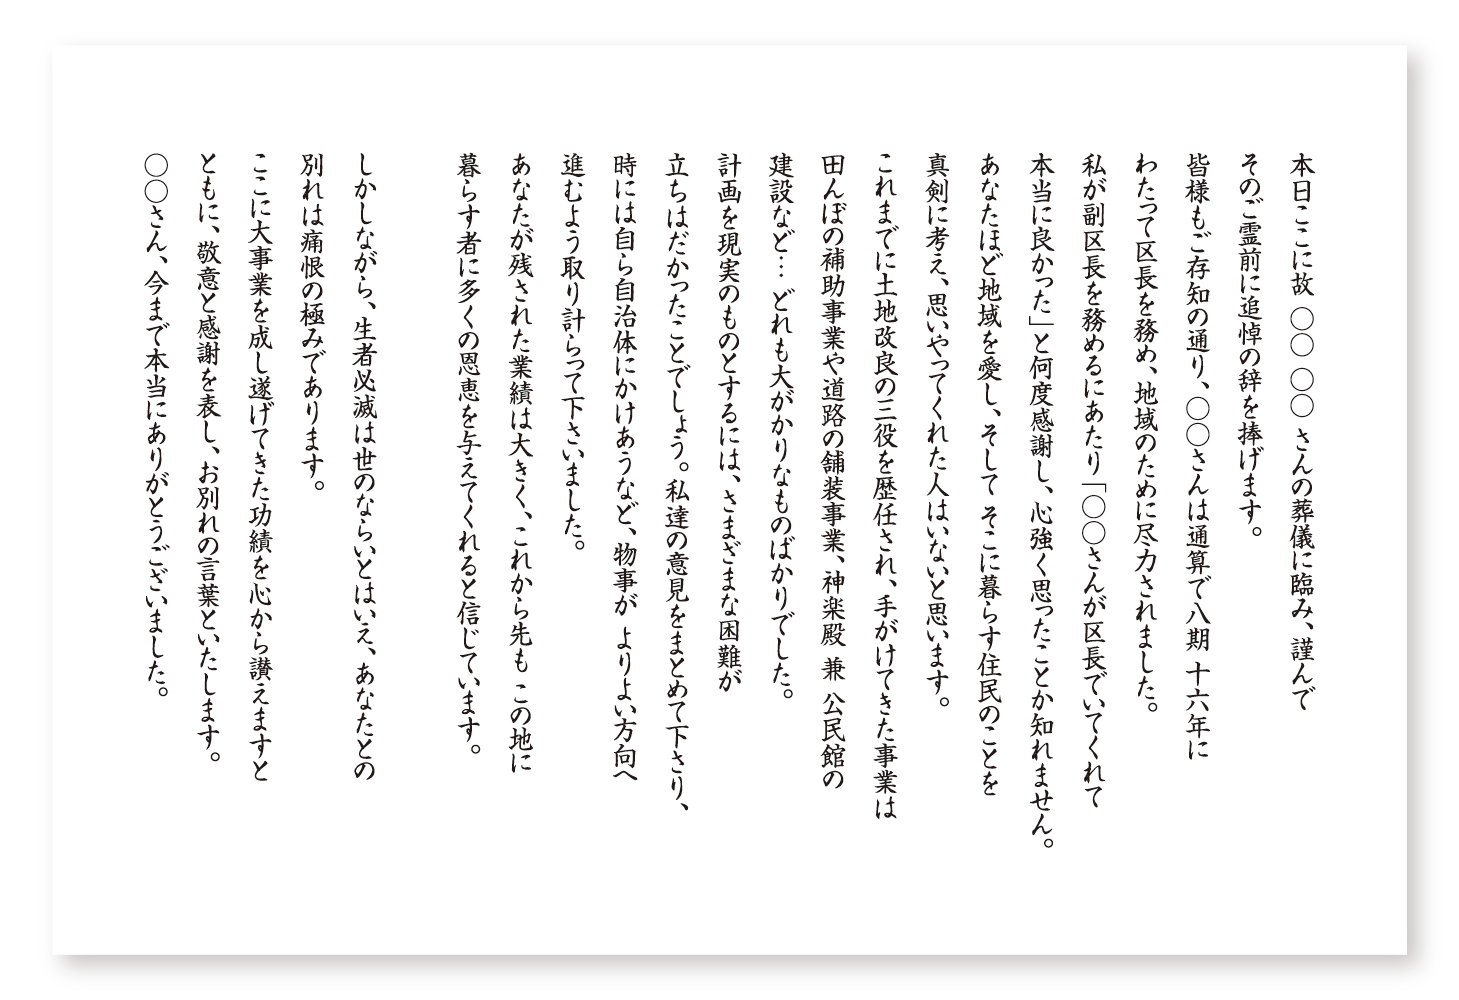 本日ここに故 〇〇 〇〇 さんの葬儀に臨み、謹んで
そのご霊前に追悼の辞を捧げます。
皆様もご存知の通り、〇〇さんは通算で八期 十六年に
わたって区長を務め、地域のために尽力されました。
私が副区長を務めるにあたり「〇〇さんが区長でいてくれて
本当に良かった」と何度感謝し、心強く思ったことか知れません。
あなたほど地域を愛し、そして そこに暮らす住民のことを
真剣に考え、思いやってくれた人はいないと思います。
これまでに土地改良の三役を歴任され、手がけてきた事業は
田んぼの補助事業や道路の舗装事業、神楽殿 兼 公民館の
建設など… どれも大がかりなものばかりでした。
計画を現実のものとするには、さまざまな困難が
立ちはだかったことでしょう。私達の意見をまとめて下さり、
時には自ら自治体にかけあうなど、物事が よりよい方向へ
進むよう取り計らって下さいました。
あなたが残された業績は大きく、これから先も この地に
暮らす者に多くの恩恵を与えてくれると信じています。
しかしながら、生者必滅は世のならいとはいえ、あなたとの
別れは痛恨の極みであります。
ここに大事業を成し遂げてきた功績を心から讃えますと
ともに、敬意と感謝を表し、お別れの言葉といたします。
〇〇さん、今まで本当にありがとうございました。